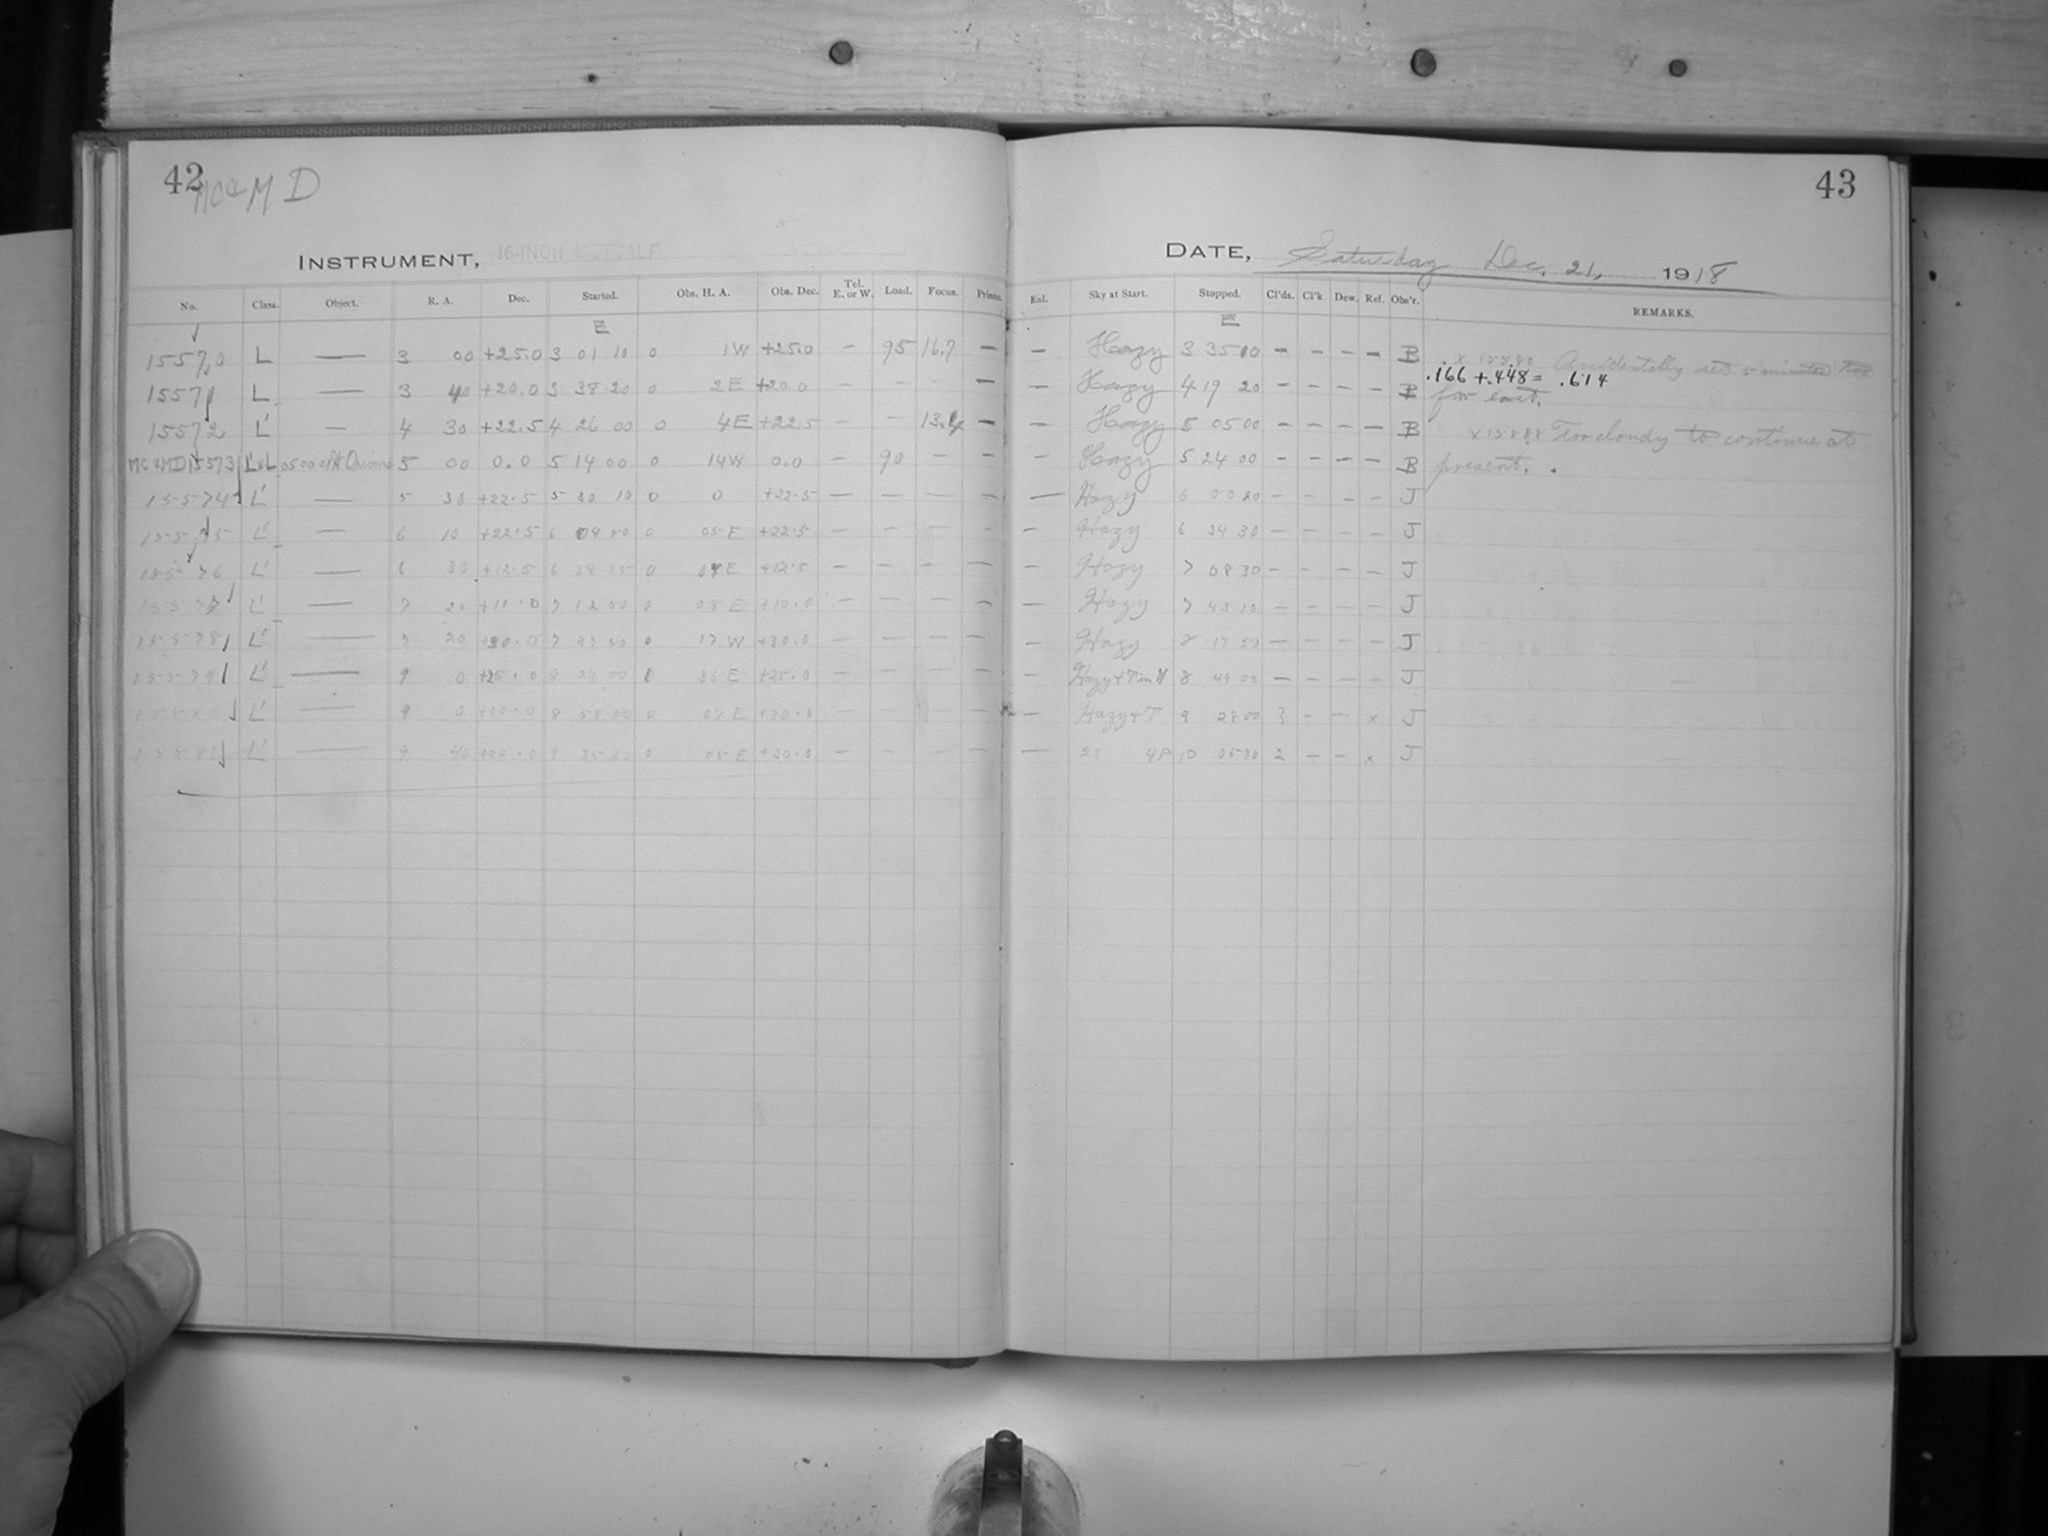 42
MC&MD
INSTRUMENT, 16-INCH METCALF
No. Class. Object. R. A. Dec. Started. Obs. H. A. Obs. Dec. Tel. E. or W. Load. Focus. Prism.
E
15570 L — 3 00 +25.0 3 01 10 0 1W +25.0 – 95 16.7 –
15571 L — 3 40 +20.0 3 38 20 0 2E +20.0 –
15572 L' — 4 30 +22.5 4 26 00 0 4E +22.5 – 13.4 –
MC&MD15573 L'&L 5 00 0.0 5 14 00 0 14W 0.0 – 90 – –
15574 L' — 5 30 +22.5 5 30 10 0 0 +22.5 – – – –
15575 L' — 6 10 +22.5 6 04 50 0 05 E +22.5 – – – –
15576 L' — 6 30 +12.5 6 38 35 0 +12.5 – – – –
15577 L' — 7 20 +10.0 7 12 50 0 08 E +10.0 – – – –
15578 L' — 7 20 +30.0 7 47 50 0 17 W +30.0 – – – –
15579 L' — 9 0 +25.0 8 29 00 0 36 E +25.0 – – – –
15580 L' — 9 0 +30.0 8 58 00 0 07 E +30.0 – – – –
15581 L' — 9 40 +30.0 9 35 30 0 05 E +30.0 – – – –
43
DATE, Saturday Dec. 21, 1918
Eal. Sky at Start. Stopped. Cl'ds. Cl'k. Dew. Ref. Obs'r. REMARKS.
E
– Hazy 3 35 10 – – – – B x 15580 Accidentally set 5 minutes too
.166 + .448 = .614
– Hazy 4 19 20 – – – – B far east.
– Hazy 5 05 00 – – – – B x 15581 Too cloudy to continue at
– Hazy 5 24 00 – – – – B present.
– Hazy 6 00 20 – – – – J
– Hazy 6 34 30 – – – – J
– Hazy 7 08 30 – – – – J
– Hazy 7 43 10 – – – – J
– Hazy 8 17 50 – – – – J
– Hazy + 8 49 00 – – – – J
– Hazy + T 9 28 00 ? – – x J
– 4P 10 05 30 2 – – x J